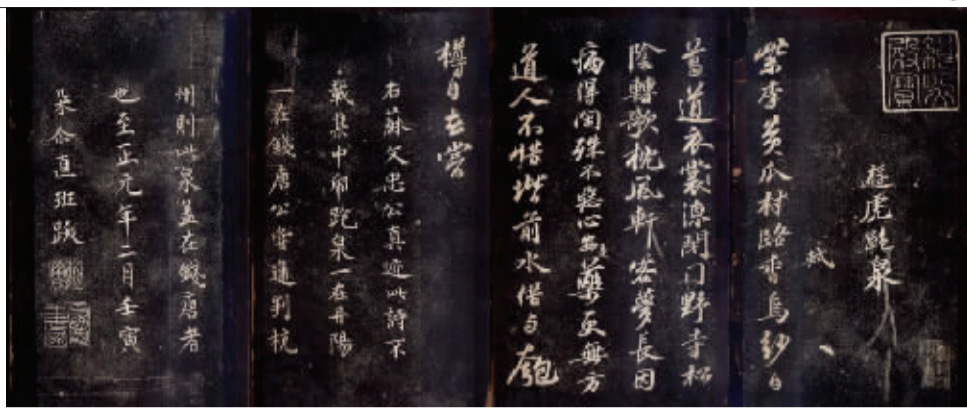 緝熙殿寶
遊虎跑泉
軾
紫李黄瓜村路香烏紗白
葛道衣裳凉閉門野寺松
陰轉欹枕風軒客夢長因
病得閑殊不惡安心是藥更無方
道人不惜堦前水借与匏
樽自在嘗
右蘇文忠公真迹此詩不
載集中虎跑泉一在丹陽
一在錢唐公嘗通判杭
州則此泉盖在錢唐者
也至正元年二月壬寅
朵尒直班跋